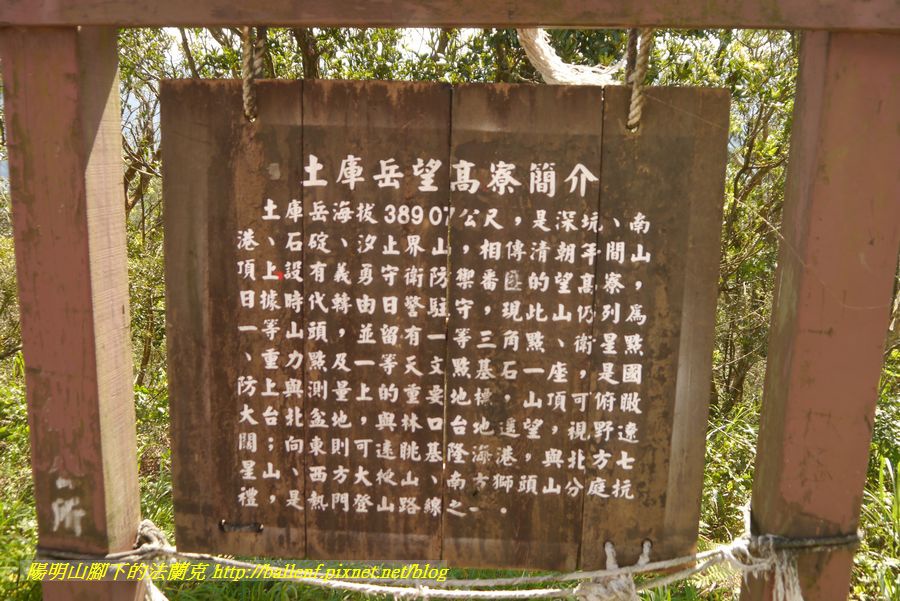 土庫岳望高寮簡介
土庫岳海拔389 07公尺，是深坑、南
港、石碇、汐止界山，相傳清朝年間山
頂上設有義勇守衛防禦番的望高寮，
日據時代轉由日警駐守，現此山仍列為
一等山頭，並留有等三角點、衛星點
、重力點及一等一點基石一座，是國
防上與測量上的天文地標，山頂可俯瞰
大台北盆地，與林口台地遙望，視野遼
闊；向東則可遠眺基隆海港，與北方七
星山、西方大棱山、南方獅頭山分庭抗
禮，是熱門登山路線之一。
所
陽明山腳下的法蘭克 http://ballenf.pixnet.net/blog